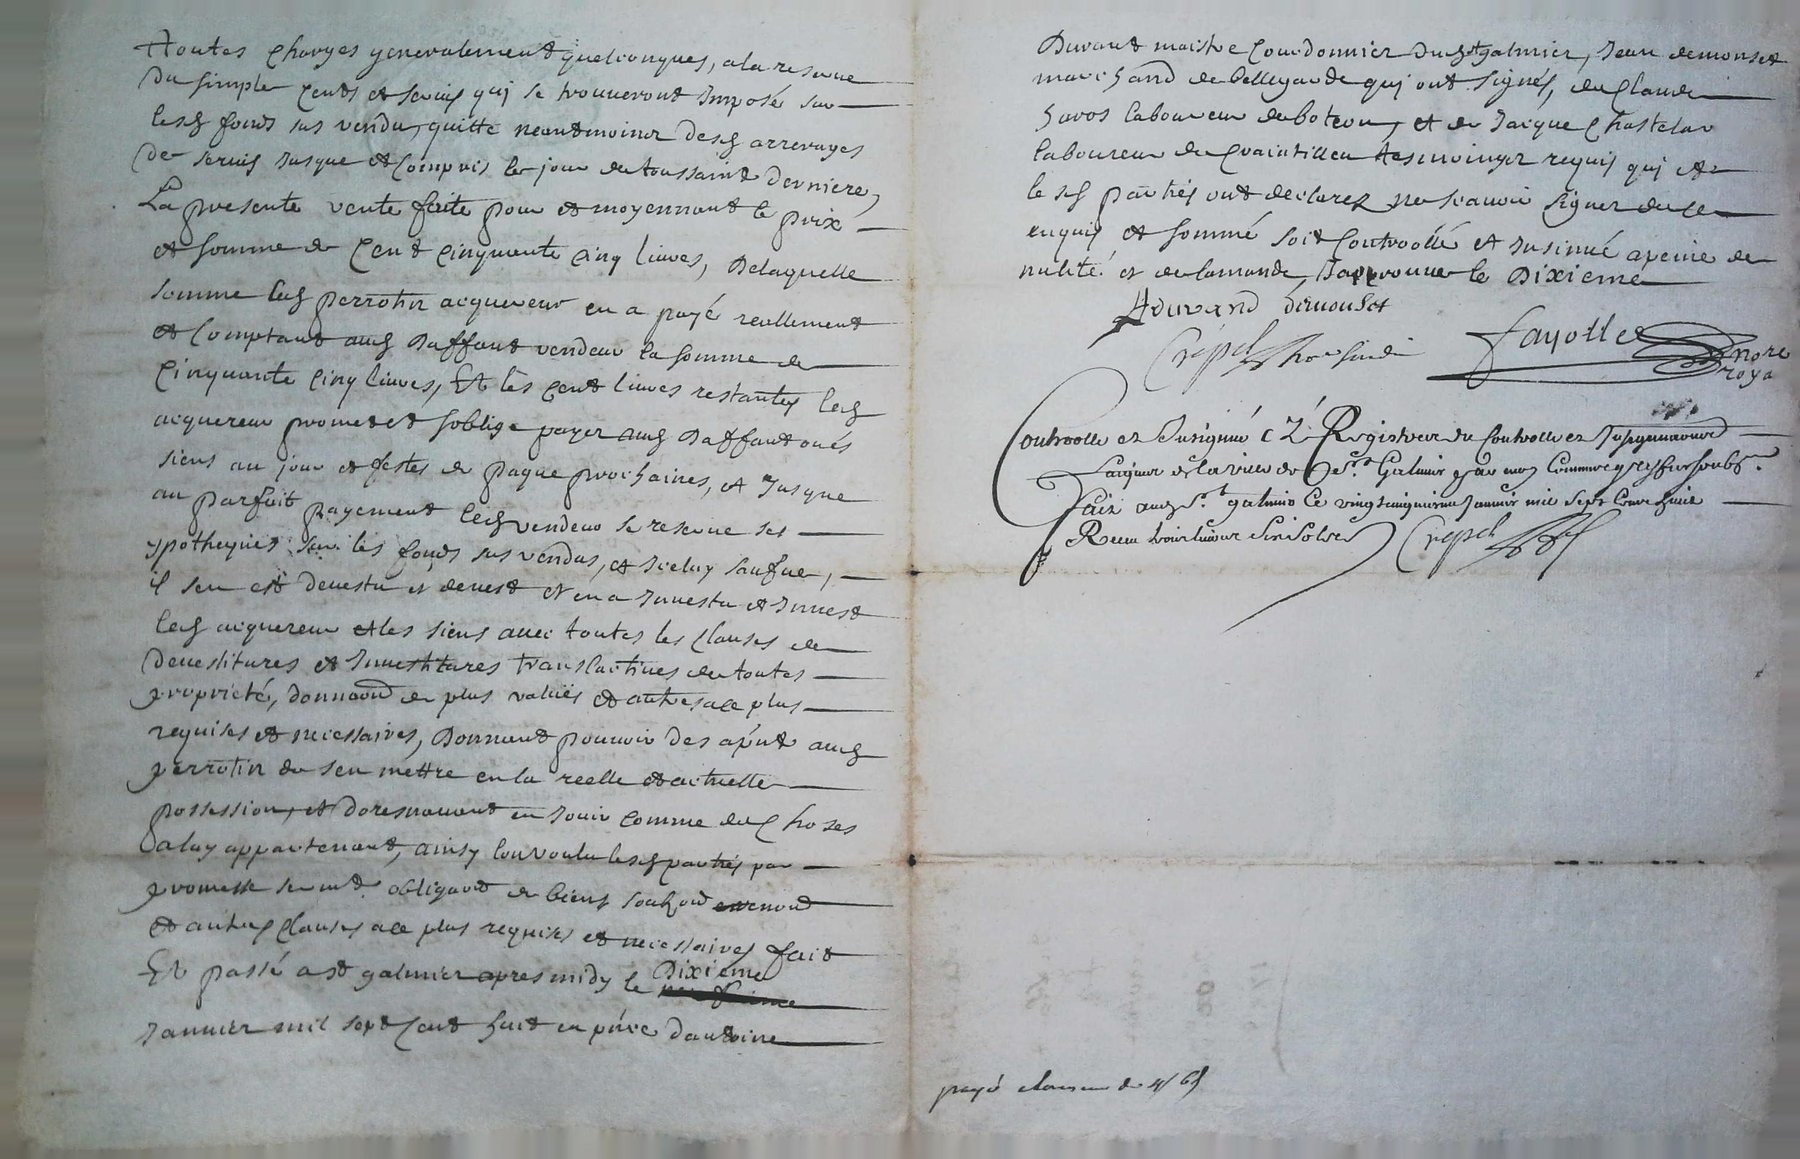 toutes charges generalement quelconques, a la reserve
du simple cents et servis qui se trouveront Imposé sur
lesd fonds sus vendu, quitte neantmoinor desd arrerages
de servis Jusque et Compris le jour de toussaint derniere,
La presente vente faite pour et moyennant le prix
et somme de Cent Cinquante Cinq livres, De laquelle
somme led perrotin acquereur en a payé reallement
et Comptant aud Daffaut vendeur la somme de
Cinquante Cinq livres, Et les cent livres restantes led
acquereur promet et soblige payer aud Daffaut ou és
siens au jour et festes de paque prochaines, et Jusque
au parfait payement led vendeur se reserve ses
ypotheques sur les fonds sus vendus, et Iceluy saufve,
il sen est devestu et devest et en a Investu et Invest
led acquereur et les siens avec toutes les Clauses de
devestitures et Investitures translactives de toutes
proprieté, donnaond de plus valués et autres a ce plus
requises et necessaires, Donnant pouvoir des apnt aud
perrotin de sen mettre en la reelle et actuelle
possession, et doresnavant en Jouir comme de Choses
a luy appartenant, ainsy lon voulu lesd parties par
promesse sermt obligaond de biens
et autres Clauses a ce plus requises et necessaires fait
Et passé a st galmier apres midy le Dixieme
Janvier mil sept Cent huit en pnce dantoine
Durant maistre Courdonnier dud st galmier, Jean demonset
marchand de bellegarde qui ont signés, de Claude
havos laboureur de boteon, et de Jacque Chastelar
laboureur de Craintilleu tesmoinger requis qui et
lesd parties ont declarez ne scavoir signer de ce
enquis et sommé soit Controollé et Insinué a peine de
nulité et de lamande, Japprouve le Dixieme
ADurand demonset
Crepel Fayolle
nore
roya
Controlle et Insignué
St Galmier
Fait aud St galmier Ce vingt Janvier mil sept Cent huit
Receu
Crepel
payé